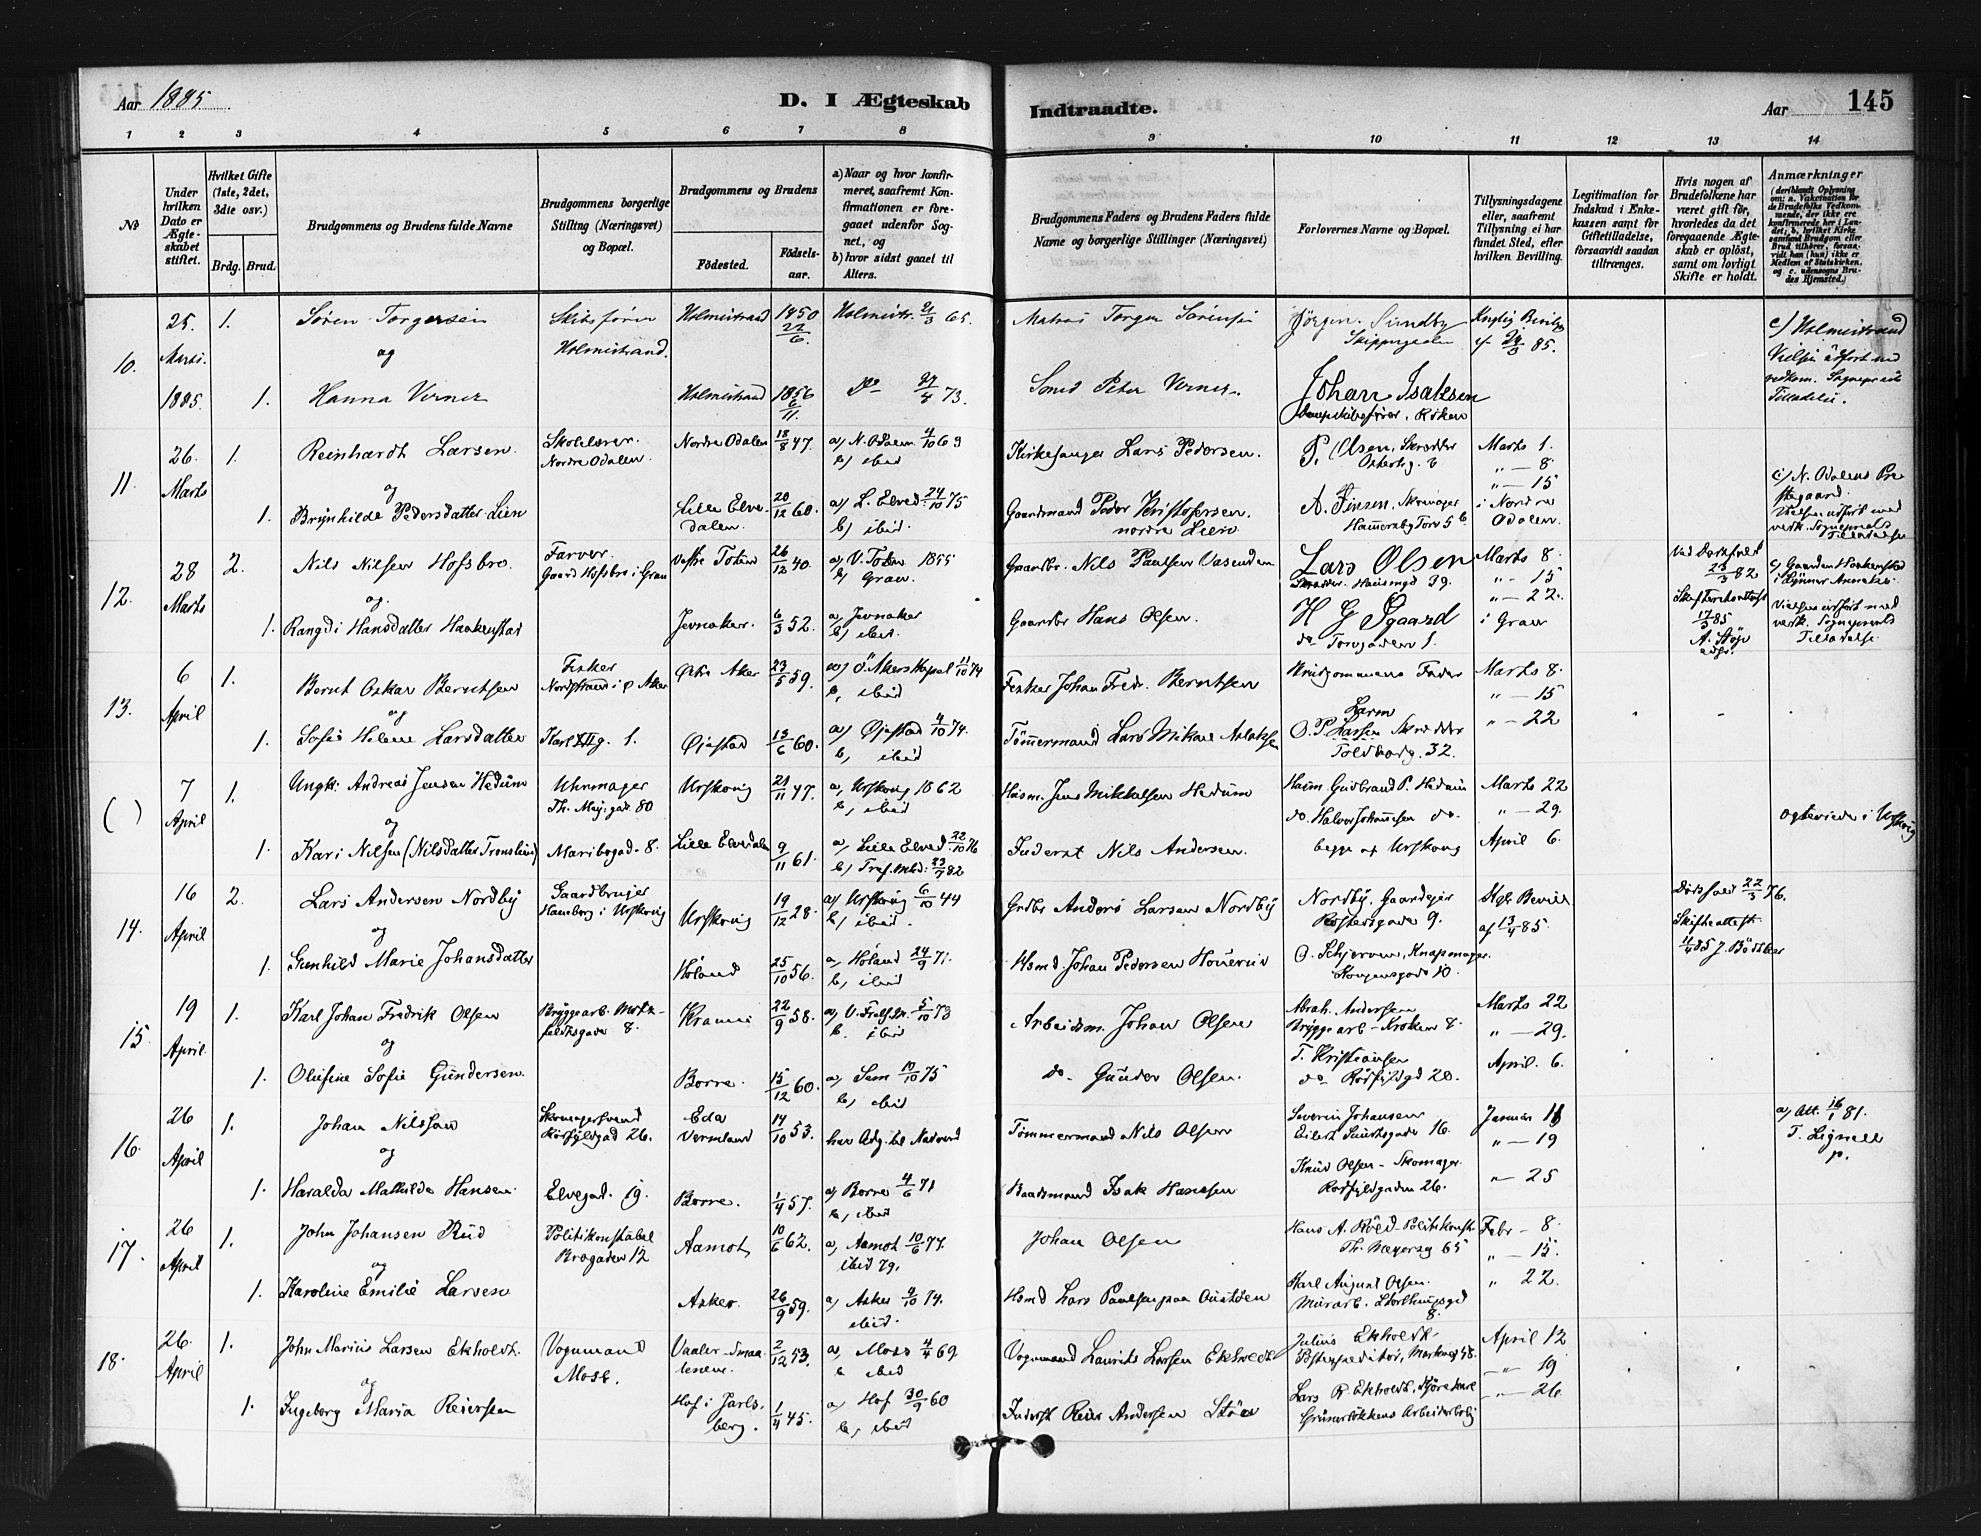 Aar 1885
D. I Ægteskab
Indtraadte.
Aar
145
1 2 3 4 5 6 7 8 9 10 11 12 13 14
№
Under hvilken Dato er Ægteskabet stiftet.
Hvilket Gifte (1ste, 2det, 3die osv.)
Brdg. Brud.
Brudgommens og Brudens fulde Navne
Brudgommens borgerlige Stilling (Næringsvei) og Bopæl.
Brudgommens og Brudens
Fødested.
Fødselsaar.
a) Naar og hvor konfirmeret, saafremt Konfirmationen er foregaaet udenfor Sognet, og
b) hvor sidst gaaet til Alters.
Brudgommens Faders og Brudens Faders fulde Navne og borgerlige Stillinger (Næringsvei)
Forlovernes Navne og Bopæl.
Tillysningsdagene eller, saafremt Tillysning ei har fundet Sted, efter hvilken Bevilling.
Legitimation for Indskud i Enkekassen samt for Giftetilladelse, forsaavidt saadan tiltrænges.
Hvis nogen af Brudefolkene har været gift før, hvorledes da det foregaaende Ægteskab er opløst, samt om lovligt Skifte er holdt.
Anmærkninger
(deriblandt Oplysning om: a. Vakcination for de Brudefolks Vedkommende, der ikke ere konfirmerede her i Landet; b. hvilket Kirkesamfund Brudgom eller Brud tilhører, forsaavidt han (hun) ikke er Medlem af Statskirken, og c. udensogns Brudes Hjemsted.)
10. 25. Marts. 1885. 1. Søren Torgersen Skibsfører Holmestrand. Holmestrand 1850 22/6. Holmestr. 65. Matros Torger Sørensen Jørgen Sundby Skippergaden Kngلig
og
1. Hanna Verner Holmestrand 1856 6/11. do 73. Smed Peter Verner. Johan Isaksen Dampskibsfører, Røken
c/ Holmestrand Vielsen udført med vedkom. Sognepræsts Tilladelse.
11. 26. Marts 1. Reinhardt Larsen. Skolelærer. Nordre Odalen. Nordre Odalen 18/8 47. a) N. Odalen 4/10 63 b) ibid Kirkesanger Lars Pedersen. P. Olsen, Skrædder Marts 1. " — 8 " — 15 i Nordre Odalen.
og
1. Brynhilde Pedersdatter Lien Lille Elvedalen. 20/12 60. a) L. Elved. 24/10 75 b) ibid. Gaardmand Peder Kristofersen. nordre Lien A. Jensen, Skomager Hammersby Torv 5 b.
c/ N. Odalens Prestegaard. Vielsen udført med vedk. Sognepræsts Tilladelse
12. 28 Marts 2. Nils Nilsen Hofsbro. Farver. Gaard Hofsbro i Gran Vestre Toten 26/12 40. a) V. Toten 1855 b) Gran. Gaardbr. Nils Paulsen Vasenden Lars Olsen Skrædder. Hausmgd 39. Marts 8. " — 15 " — 22. i Gran
og.
1. Rangdi Hansdatter Haakenstad Jevnaker. 6/3 52. a) Jevnaker b) ibid. Gaardbr Hans Olsen. H G Øgaard do Torvgaden 1.
Ved Dødsfald 23/3 82 Skifterettsattest 17/3 85
c/ Gaarden Haakenstad Vielsen udført med vedk. Sognepræsts Tilladelse.
13. 6 April 1. Bernt Oskar Berntsen Fisker Nordstrand i Ø Aker Østre Aker 23/5 59. a) Ø. Akers Kapel 11/10 74 b) ibid Fisker Johan Fredr. Berntsen Brudgommens Fader Marts 8. " — 15 " — 22
og
1. Sofie Helene Larsdatter Karl XII g. 1. Øiestad 13/6 60. a) Øiestad 4/10 74. b) ibid Tømmermand Lars Mikael Aslaksen O. P. Larsen Skrædder Toldbodg. 32.
( ) 7 April 1. Ungk. Andreas Jensen Hedum Uhrmager Th. Mej. gade 80 Urskoug 21/11 47. a, Urskoug 1862 b, ibid Husm. Jens Mikkelsen Hedum Husm. Gudbrand P. Hedum do. Halvor Johannesen do. begge af Urskoug Marts 22 " — 29. April 6.
og
1. Kari Nilsen (Nilsdatter Tronslien) Maribogad. 8. Lille Elvedalen 9/11 61. a) Lille Elved 22/10 76 b) Tref. Mkd. 23/7 82 Inderst Nils Andersen.
ogteviede i Urskoug
14. 16 April 2. Lars Andersen Nordby Gaardbruger Urskoug 19/12 28. a) Urskoug 6/10 44 b) ibid. Grdbr Anders Larsen Nordby Nordby, Gaardejer 9. Kgl. Bevill. af 13/4 85.
og
1. Gunhild Marie Johansdatter Høland 25/10 56. a, Høland 24/9 71. b) ibid Hsmd. Johan Pedersen O. Schjerven, Knapmager. Kongensgade 10.
Dødsfald 22/3 76. Skifteattest
15. 19 April. 1. Karl Johan Fredrik Olsen Bryggearb. 8. 22/9 58. 5/10 73 b. ibid Arbeidsm. Johan Olsen Abrah. Andersen Bryggearb — Kroken 8. Marts 22 " — 29. April. 6.
og
1. Olufine Sofie Gundersen. Borre. 15/12 60. a) Sem 10/10 75 b) ibid do. Gunder Olsen. T. Kristiansen do Rødfyldgd 20.
16. 26 April 1. Johan Nilsson Skomagersvend Rødfyldgad 26. Eda Vermland 14/10 53. har Adg. til Nadverd Tømmermand Nils Olsson Severin Johansen Eilert Sundtsgade 16. Januar 11 " — 19 " — 25
og
1. Haralda Mathilde Hansen. Elvegad. 19. Borre. 1/4 57. a) Borre 4/6 71 b, ibid Baadsmand Isak Hansen Knud Olsen — Skomager. Rødfyldgaden 26.
a) Att. 16/1 81. T. Lignell p.
17. 26 April 1. John Johansen Rud Politikonstabel Brogaden 12 Aamot 10/6 62. a, Aamot 10/6 77. ibid 79. Johan Olsen Politikonst. Th. Meyersg 65 Febr — 8. " — 15. " 22.
og
1. Karoline Emilie Larsen Asker. 26/9 59. a) Asker 4/10 74. ibid. Hsmd Lars Paulsen Karl August Olsen. Murarb. Storthingsgd 8.
18. 26. April 1. John Marius Larsen Ekholdt. Vognmand Moss. Vaaler Smaalenene. 2/12 53. a, Moss 4/4 69. b ibid Vognmand Laurits Larsen Ekholdt Julius Ekholdt. Postexpeditør, Markveg 58. April 12 " — 19 " — 26
og
1. Ingeborg Maria Reiersen Hof i Jarlsberg. 1/4 45. a, Hof 30/9 60 b, ibid Inderst Reier Andersen Lars R. Ekholdt, Kjørekarl Grünerløkkens Arbeiderbolig